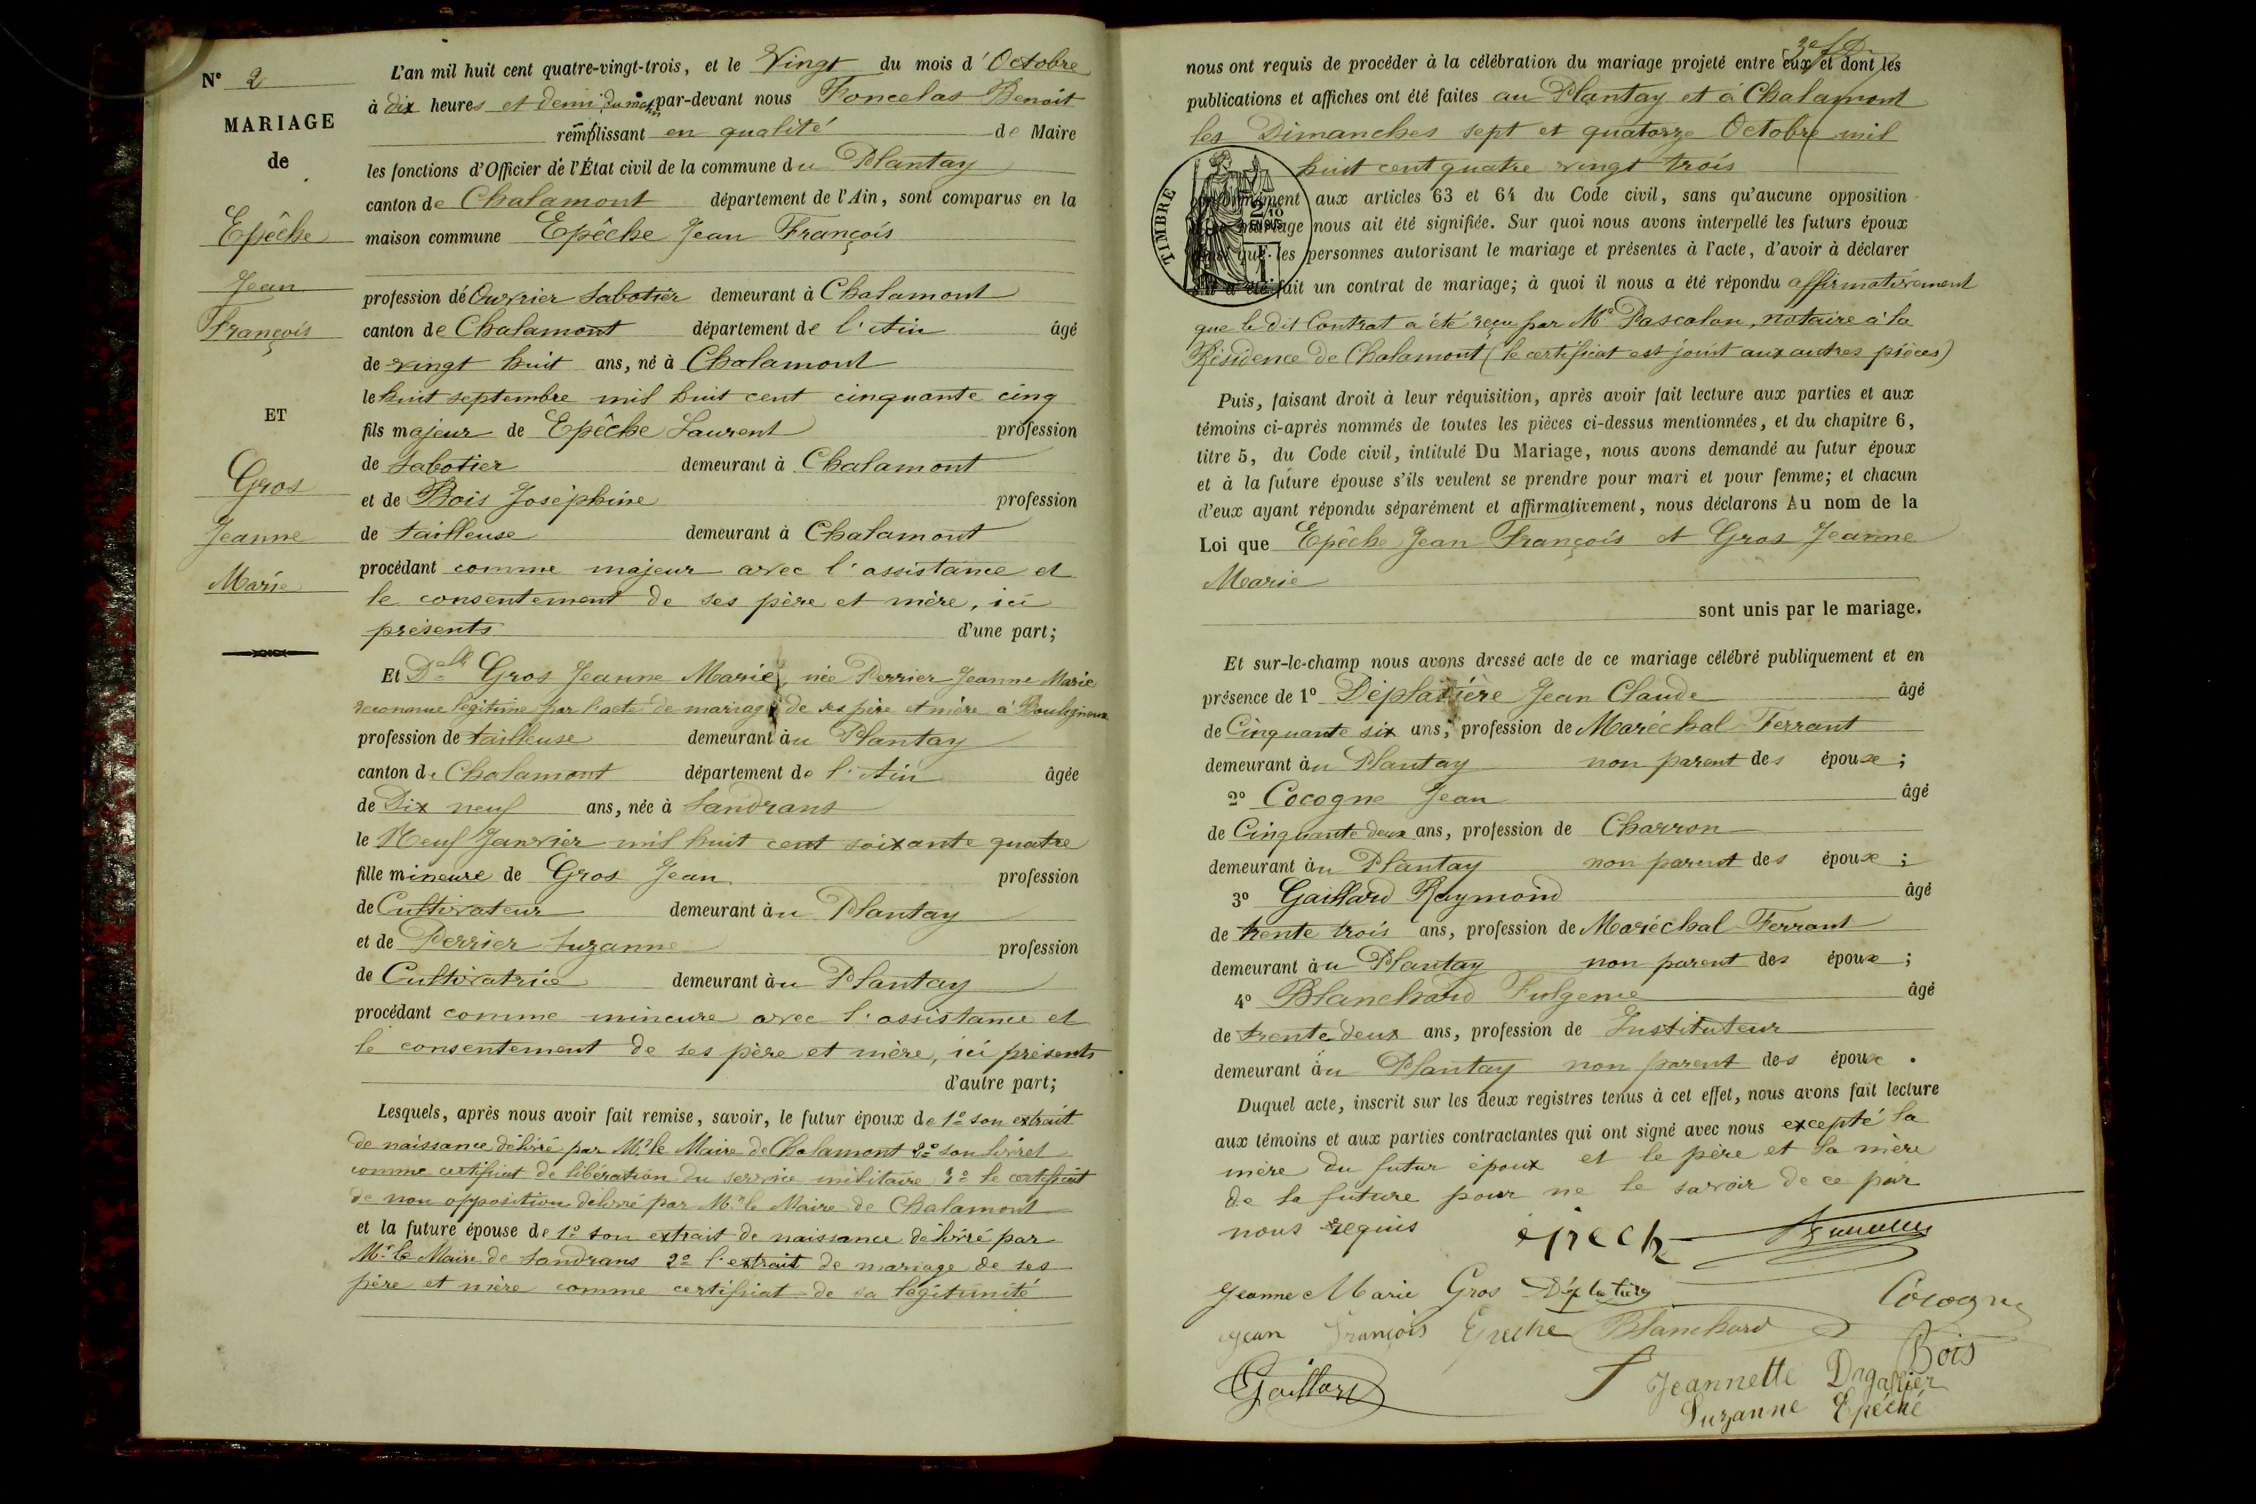 N° 2
MARIAGE
de
Epêche
Jean
François
ET
Gros
Jeanne
Marie
L'an mil huit cent quatre-vingt-trois, et le Vingt du mois d'Octobre
à dix heures et demi du matin par-devant nous Foncelas Benoit
remplissant en qualité de Maire
les fonctions d'Officier de l'État civil de la commune du Plantay
canton de Chalamont département de l'Ain, sont comparus en la
maison commune Epêche Jean François
profession de Ouvrier Sabotier demeurant à Chalamont
canton de Chalamont département de l'Ain âgé
de vingt huit ans, né à Chalamont
le huit septembre mil huit cent cinquante cinq
fils majeur de Epêche Laurent profession
de Sabotier demeurant à Chalamont
et de Bois Joséphine profession
de tailleuse demeurant à Chalamont
procédant comme majeur avec l'assistance et
le consentement de ses père et mère, ici
présents d'une part;
Et Dlle Gros Jeanne Marie, née Perrier Jeanne Marie
reconnue légitime par l'acte de mariage de ses père et mère à Bouligneux
profession de tailleuse demeurant àu Plantay
canton de Chalamont département de l'Ain âgée
de Dix neuf ans, née à Sandrans
le Neuf Janvier mil huit cent soixante quatre
fille mineure de Gros Jean profession
de Cultivateur demeurant àu Plantay
et de Perrier Suzanne profession
de Cultivatrice demeurant àu Plantay
procédant comme mineure avec l'assistance et
le consentement de ses père et mère, ici présents
d'autre part;
Lesquels, après nous avoir fait remise, savoir, le futur époux de 1° son extrait
de naissance délivré par Mr le Maire de Chalamont 2° son livret
comme certificat de libération du service militaire 3° le certificat
de non opposition délivré par Mr le Maire de Chalamont
et la future épouse de 1° son extrait de naissance délivré par
Mr le Maire de Sandrans 2° l'extrait de mariage de ses
père et mère comme certificat de sa légitimité
nous ont requis de procéder à la célébration du mariage projeté entre eux et dont les
publications et affiches ont été faites au Plantay et à Chalamont
les Dimanches sept et quatorze Octobre mil
huit cent quatre vingt trois
TIMBRE
2/10
EN SUS
conformément aux articles 63 et 64 du Code civil, sans qu'aucune opposition
mariage nous ait été signifiée. Sur quoi nous avons interpellé les futurs époux
que les personnes autorisant le mariage et présentes à l'acte, d'avoir à déclarer
s'il a été fait un contrat de mariage; à quoi il nous a été répondu affirmativement
que le dit Contrat a été reçu par Me Pascalon, notaire à la
Résidence de Chalamont (le certificat est joint aux autres pièces)
Puis, faisant droit à leur réquisition, après avoir fait lecture aux parties et aux
témoins ci-après nommés de toutes les pièces ci-dessus mentionnées, et du chapitre 6,
titre 5, du Code civil, intitulé Du Mariage, nous avons demandé au futur époux
et à la future épouse s'ils veulent se prendre pour mari et pour femme; et chacun
d'eux ayant répondu séparément et affirmativement, nous déclarons Au nom de la
Loi que Epêche Jean François et Gros Jeanne
Marie
sont unis par le mariage.
Et sur-le-champ nous avons dressé acte de ce mariage célébré publiquement et en
présence de 1° Déplatière Jean Claude âgé
de Cinquante six ans, profession de Maréchal Ferrant
demeurant àu Plantay non parent des époux;
2° Cocogne Jean âgé
de Cinquante deux ans, profession de Charron
demeurant àu Plantay non parent des époux;
3° Gaillard Raymond âgé
de trente trois ans, profession de Maréchal Ferrant
demeurant àu Plantay non parent des époux;
4° Blanchard Fulgence âgé
de trente deux ans, profession de Instituteur
demeurant àu Plantay non parent des époux.
Duquel acte, inscrit sur les deux registres tenus à cet effet, nous avons fait lecture
aux témoins et aux parties contractantes qui ont signé avec nous excepté la
mère du futur époux et le père et la mère
de la future pour ne le savoir de ce par
nous requis
Jeanne Marie Gros Déplatière Cocogne
Jean François Epeche Blanchard Bois
Gaillard Jeannette Dagallier
Suzanne Epéche